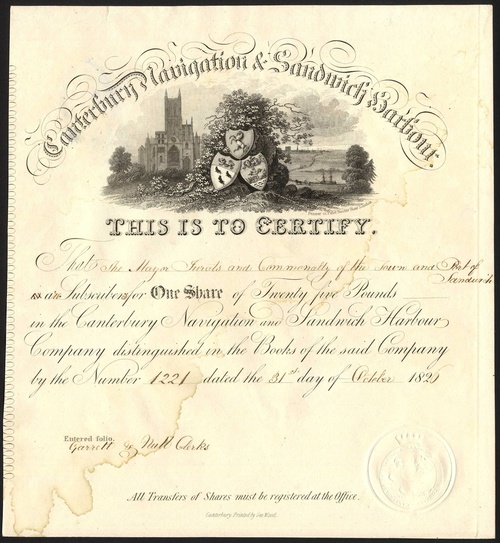 Canterbury Navigation & Sandwich Harbour.
THIS IS TO CERTIFY.
That The Mayor Jurats and Commonalty of the Town and Port of Sandwich
Subscriber for One Share of Twenty five Pounds
in the Canterbury Navigation and Sandwich Harbour
Company distinguished in the Books of the said Company
by the Number 1221 dated the 31st day of October 1825
Entered folio.
Garrett & Nutt Clerks
All Transfers of Shares must be registered at the Office.
Canterbury. Printed by Geo. Wood.